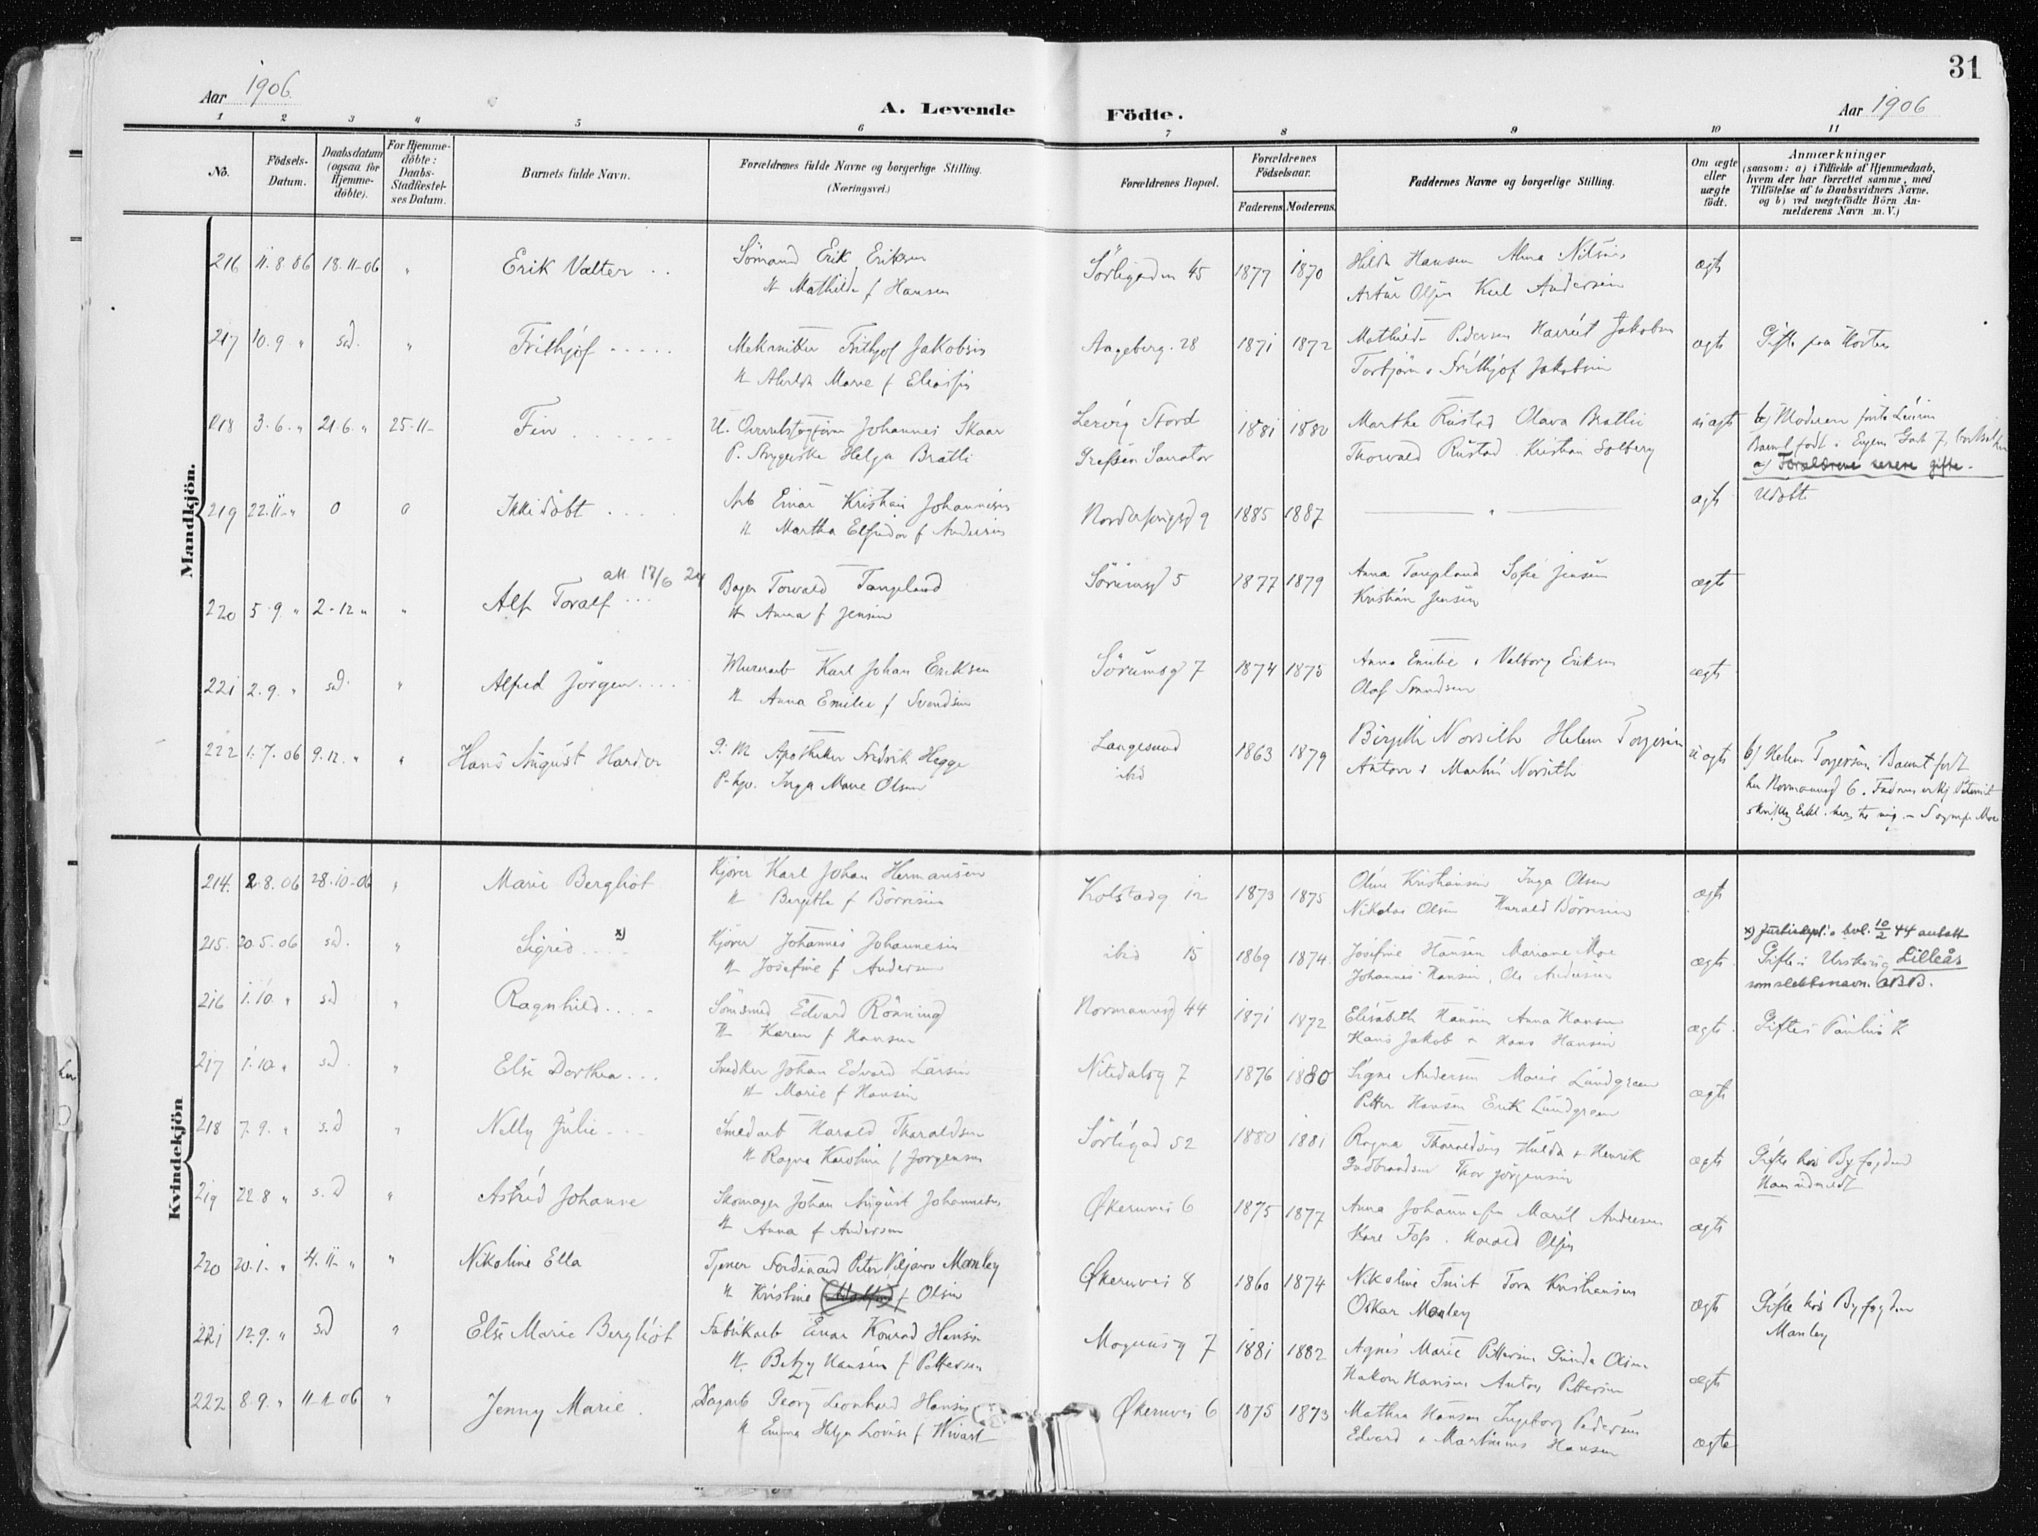 31
Aar 1906
A. Levende Födte.
Aar 1906
1 2 3 4 5 6 7 8 9 10 11
No.
Födsels-Datum.
Daabsdatum (ogsaa for Hjemme-döbte).
For Hjemme-döbte: Daabs-Stadfæstel-ses Datum.
Barnets fulde Navn.
Forældrenes fulde Navne og borgerlige Stilling. (Næringsvei.)
Forældrenes Bopæl.
Forældrenes Födselsaar.
Faderens Moderens
Faddernes Navne og borgerlige Stilling.
Om ægte eller uægte födt.
Anmærkninger (saasom: a) i Tilfælde af Hjemmedaab, hvem der har forrettet samme, med Tilföielse af to Daabsvidners Navne, og b) ved uægtefödte Börn An-melderens Navn m. V.)
Mandkjön.
216 11.8.06 18.11-06 " Erik Valter Sömand Erik Eriksen Sörligaden 45 1877 1870 Hilda Hansen Alma Nilsen ægte
H Mathilde f Hansen Artur Olsen Karl Andersen
217 10.9 " sd. " Frithjof Mekaniker Frithjof Jakobsen Aageberg. 28 1871 1872 Mathilde Pedersen Harriet Jakobsen ægte Gifte paa Horten
H Alvilde Marie f Eliassen Torbjörn & Frithjof Jakobsen
218 3.6. " 21.6. " 25-11- Fin U. Johannes Skaar Lervig Stord 1881 1880 Marthe Rustad Olava Bratli uægte b) Moderen
P. Strygerske Helga Bratli Grefsen Sanator Thorvald Rustad Kristian Solberg Barnet födt
a) Forældrene senere gifte.
219 22.11- " 0 0 Ikke döbt Arb Einar Kristian Johannesen 9 1885 1887 " ægte Udöbt
H Martha Elfrida f Andersen
att. 17/6 24
220 5.9. " 2-12 " " Alf Toralf Bager Torvald Tangeland Sörumsgd 5 1877 1879 Anna Tangeland Sofie Jensen ægte
H Anna f Jensen Kristian Jensen
221 2.9. " sd. " Alfred Jörgen Murerarb Karl Johan Eriksen Sörumsg 7 1874 1875 Anna Emilie & Valborg Eriksen ægte
H Anna Emilie f Svendsen Olaf Svendsen
222 1.7.06 9.12. " " Hans August Harder G. M Apotheker Fredrik Hegge Langesund 1863 1879 Birgith Norseth Helene Torgersen uægte b) Helene Torgersen. Barnet født
P. hjv. Inga Marie Olsen ibid Anton & Martin Norseth her Normannsgd 6.
Kvindekjön
214. 2.8.06 28-10-06 " Marie Bergliot Kjører Karl Johan Hermansen Kolstadg 12 1873 1875 Oline Kristiansen Inga Olsen ægte
H Bergitte f Börresen Nikolai Olsen Harald Börresen
215. 20.5.06 sd. " Sigrid x) Kjører Johannes Johannesen ibid 15 1869 1874 Josefine Hansen Mariane Moe ægte x) Justisdept. i bevl. 10/2 44 antatt
H Josefine f Andersen Johannes Hansen, Ole Andersen Gifte i Urskoug Lilleås
som slektsnavn. ABB.
216 1.10. " sd " Ragnhild Sömsmed Edvard Rönning Normannsg 44 1871 1872 Elisabeth Hansen Anna Hansen ægte Gifte i Paulus K
H Karen f Hansen Hans Jakob & Hans Hansen
217 1.10. " sd " Else Dorthea Snedker Johan Edvard Larsen Nitedalsg 7 1876 1880 Signe Andersen Marie Lundgreen ægte
H Marie f Hansen Petter Hansen Erik Lundgreen
218 7.9. " s.d " Nelly Julie Smedarb Harald Thoraldsen Sörligad 52 1880 1881 Ragna Thoraldsen Hulda & Henrik ægte Gifte hos Byfogden
H Ragna Karoline f Jorgensen Gudbrandsen Thor Jörgensen Ham udmeldt
219 22.8 " s.d " Astrid Johanne Skomager Johan August Johannesen Økernvei 6 1875 1877 Anna Johannessen Marit Andersen ægte
H Anna f Andersen Kare Foss. Harald Olsen
220 20.1. " 4.11- " " Nikoline Ella Tjener Ferdinand Peter Viljam Manley Økernvei 8 1860 1874 Nikoline Smit Tora Kristiansen ægte Gifte hos Byfogden
H Kristine f Olsen Oskar Manley Manley
221 12.9. " sd " Else Marie Bergliot Fabrikarb Einar Konrad Hansen Mogensg 7 1881 1882 Agnes Marie Pettersen Gunda Olsen ægte
H. Betzy Hansen f Pettersen Hakon Hansen Anton Pettersen
222 8.9. " 11-11-06 " Jenny Marie Dagarb Georg Leonhard Hansen Økernvei 6 1875 1873 Mathea Hansen Ingeborg Pedersen ægte
H Emma Helga Lovise f Wivart Edvard & Martinus Hansen